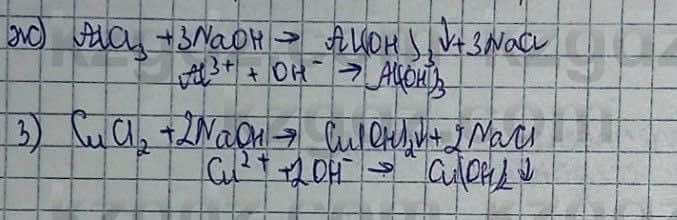 ж) AlCl₃ + 3NaOH → Al(OH)₃↓ + 3NaCl
Al³⁺ + OH⁻ → Al(OH)₃
з) CuCl₂ + 2NaOH → Cu(OH)₂↓ + 2NaCl
Cu²⁺ + 2OH⁻ → Cu(OH)₂↓